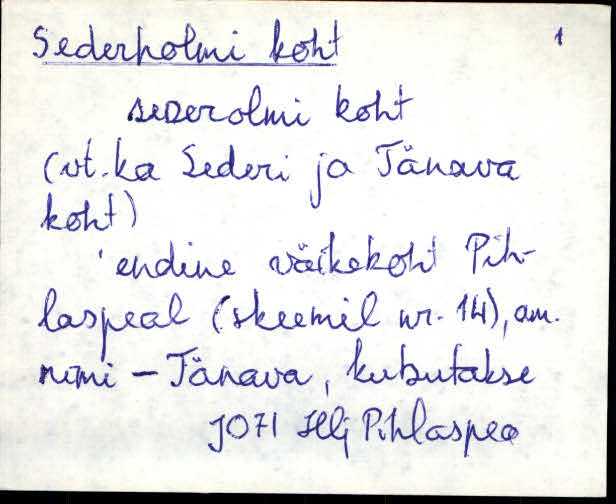 Sederholmi koht 1
sederolmi koht
(vt. ka Sederi ja Tänava
koht)
'endine väikekoht Pih-
laspeal (skeemil nr. 14), am.
nimi – Tänava, kutsutakse
JÕ71 Hlj Pihlaspea